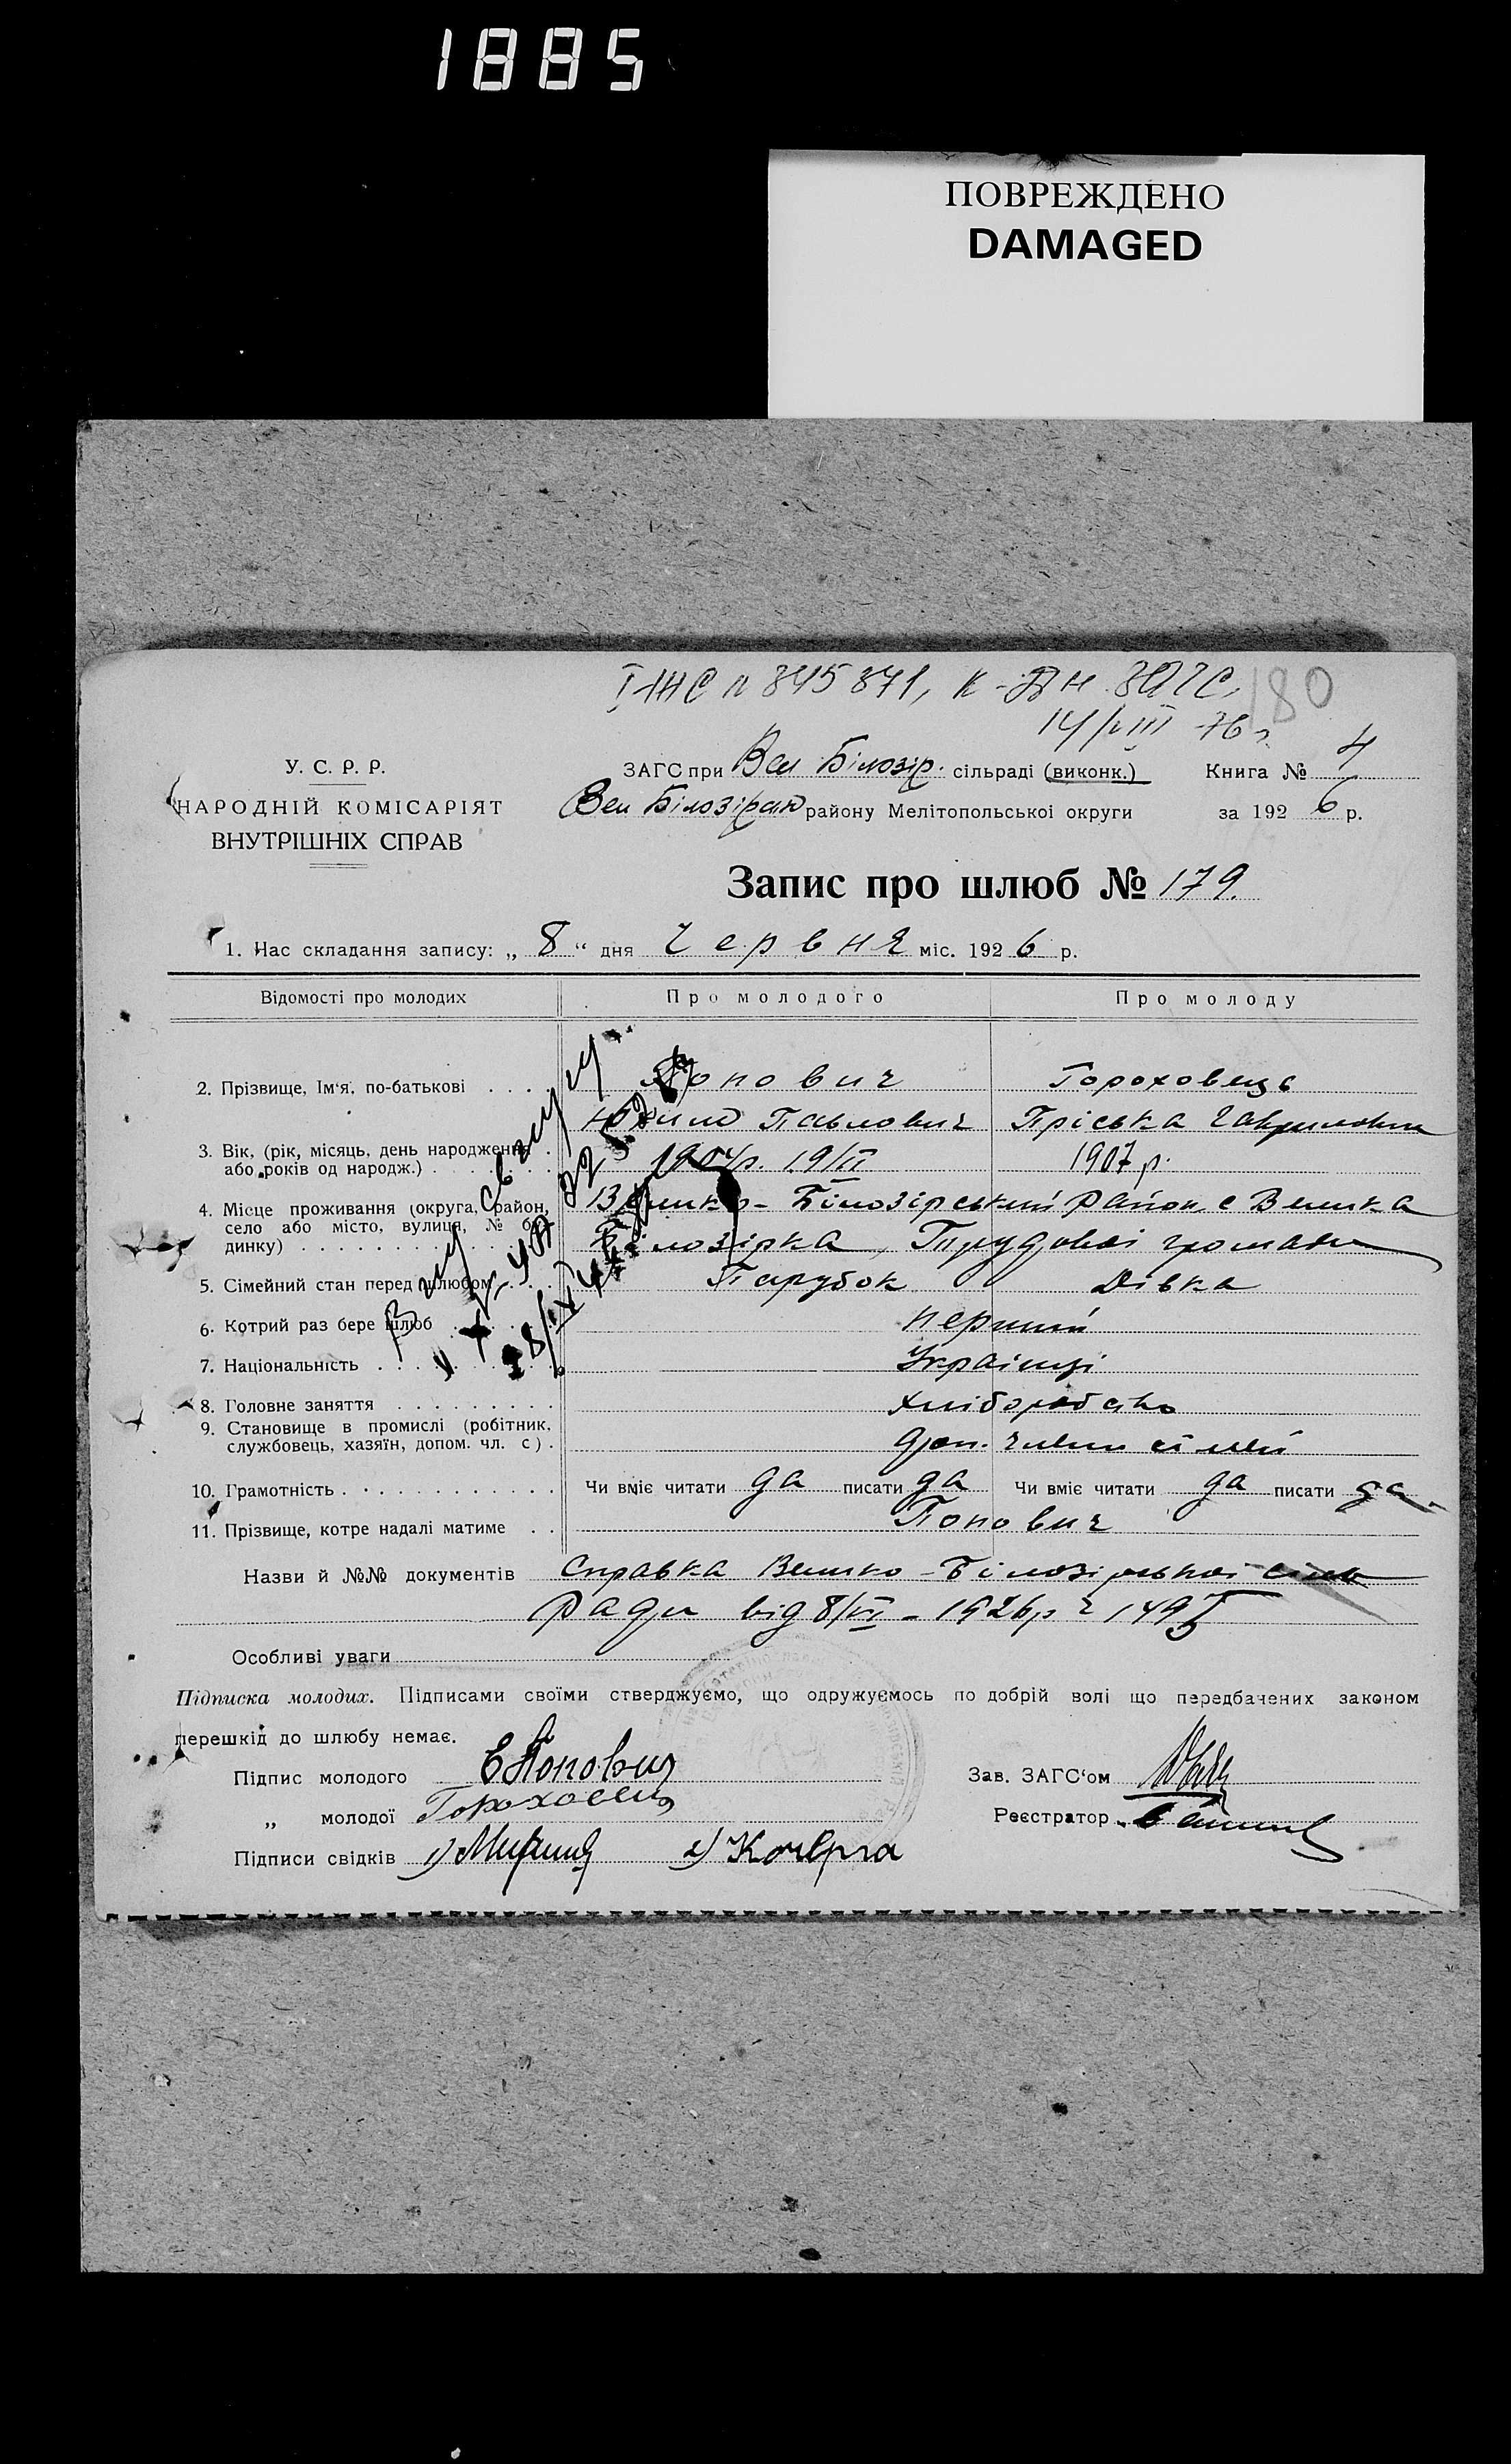 1885
ПОВРЕЖДЕНО
DAMAGED
180
14/VIII 76 г.
У. С. Р. Р.
НАРОДНІЙ КОМІСАРІЯТ
ВНУТРІШНІХ СПРАВ
ЗАГС при Вел Білозір. сільраді (виконк.) Книга № 4
Вел Білозірськ району Мелітопольської округи за 1926 р.
Запис про шлюб № 179.
1. Час складання запису: „ 8 “ дня Червня міс. 1926 р.
Відомості про молодих Про молодого Про молоду
2. Прізвище, Ім'я, по-батькові . . . . Попович Гороховець
Юхим Павлович Пріська Гаврилівна
3. Вік, (рік, місяць, день народження
або років од народж.) . . . . . . . 1904р. 19/II 1907 р.
4. Місце проживання (округа, район, Велико-Білозірський район с Велика
село або місто, вулиця, № бу-
динку) . . . . . . . . . . . . . Білозірка, Трудової громади
5. Сімейний стан перед шлюбом . . . Парубок Дівка
6. Котрий раз бере шлюб . . . . . . перший
7. Національність . . . . . . . . . . Українці
8. Головне заняття . . . . . . . . . хліборобство
9. Становище в промислі (робітник,
службовець, хазяїн, допом. чл. с) . доп. член сімьї
10. Грамотність . . . . . . . . . . . . Чи вміє читати да писати да Чи вміє читати да писати да
11. Прізвище, котре надалі матиме . . Попович
Назви й №№ документів Справка Велико-Білозірської сіль
Ради від 8/VI - 1926р ч 1495
Особливі уваги
Підписка молодих. Підписами своїми стверджуємо, що одружуємось по добрій волі що передбачених законом
перешкід до шлюбу немає.
Підпис молодого ЕПопович
„ молодої Гороховец
Підписи свідків 1) 2) Кочерга
Зав. ЗАГС'ом
Реєстратор